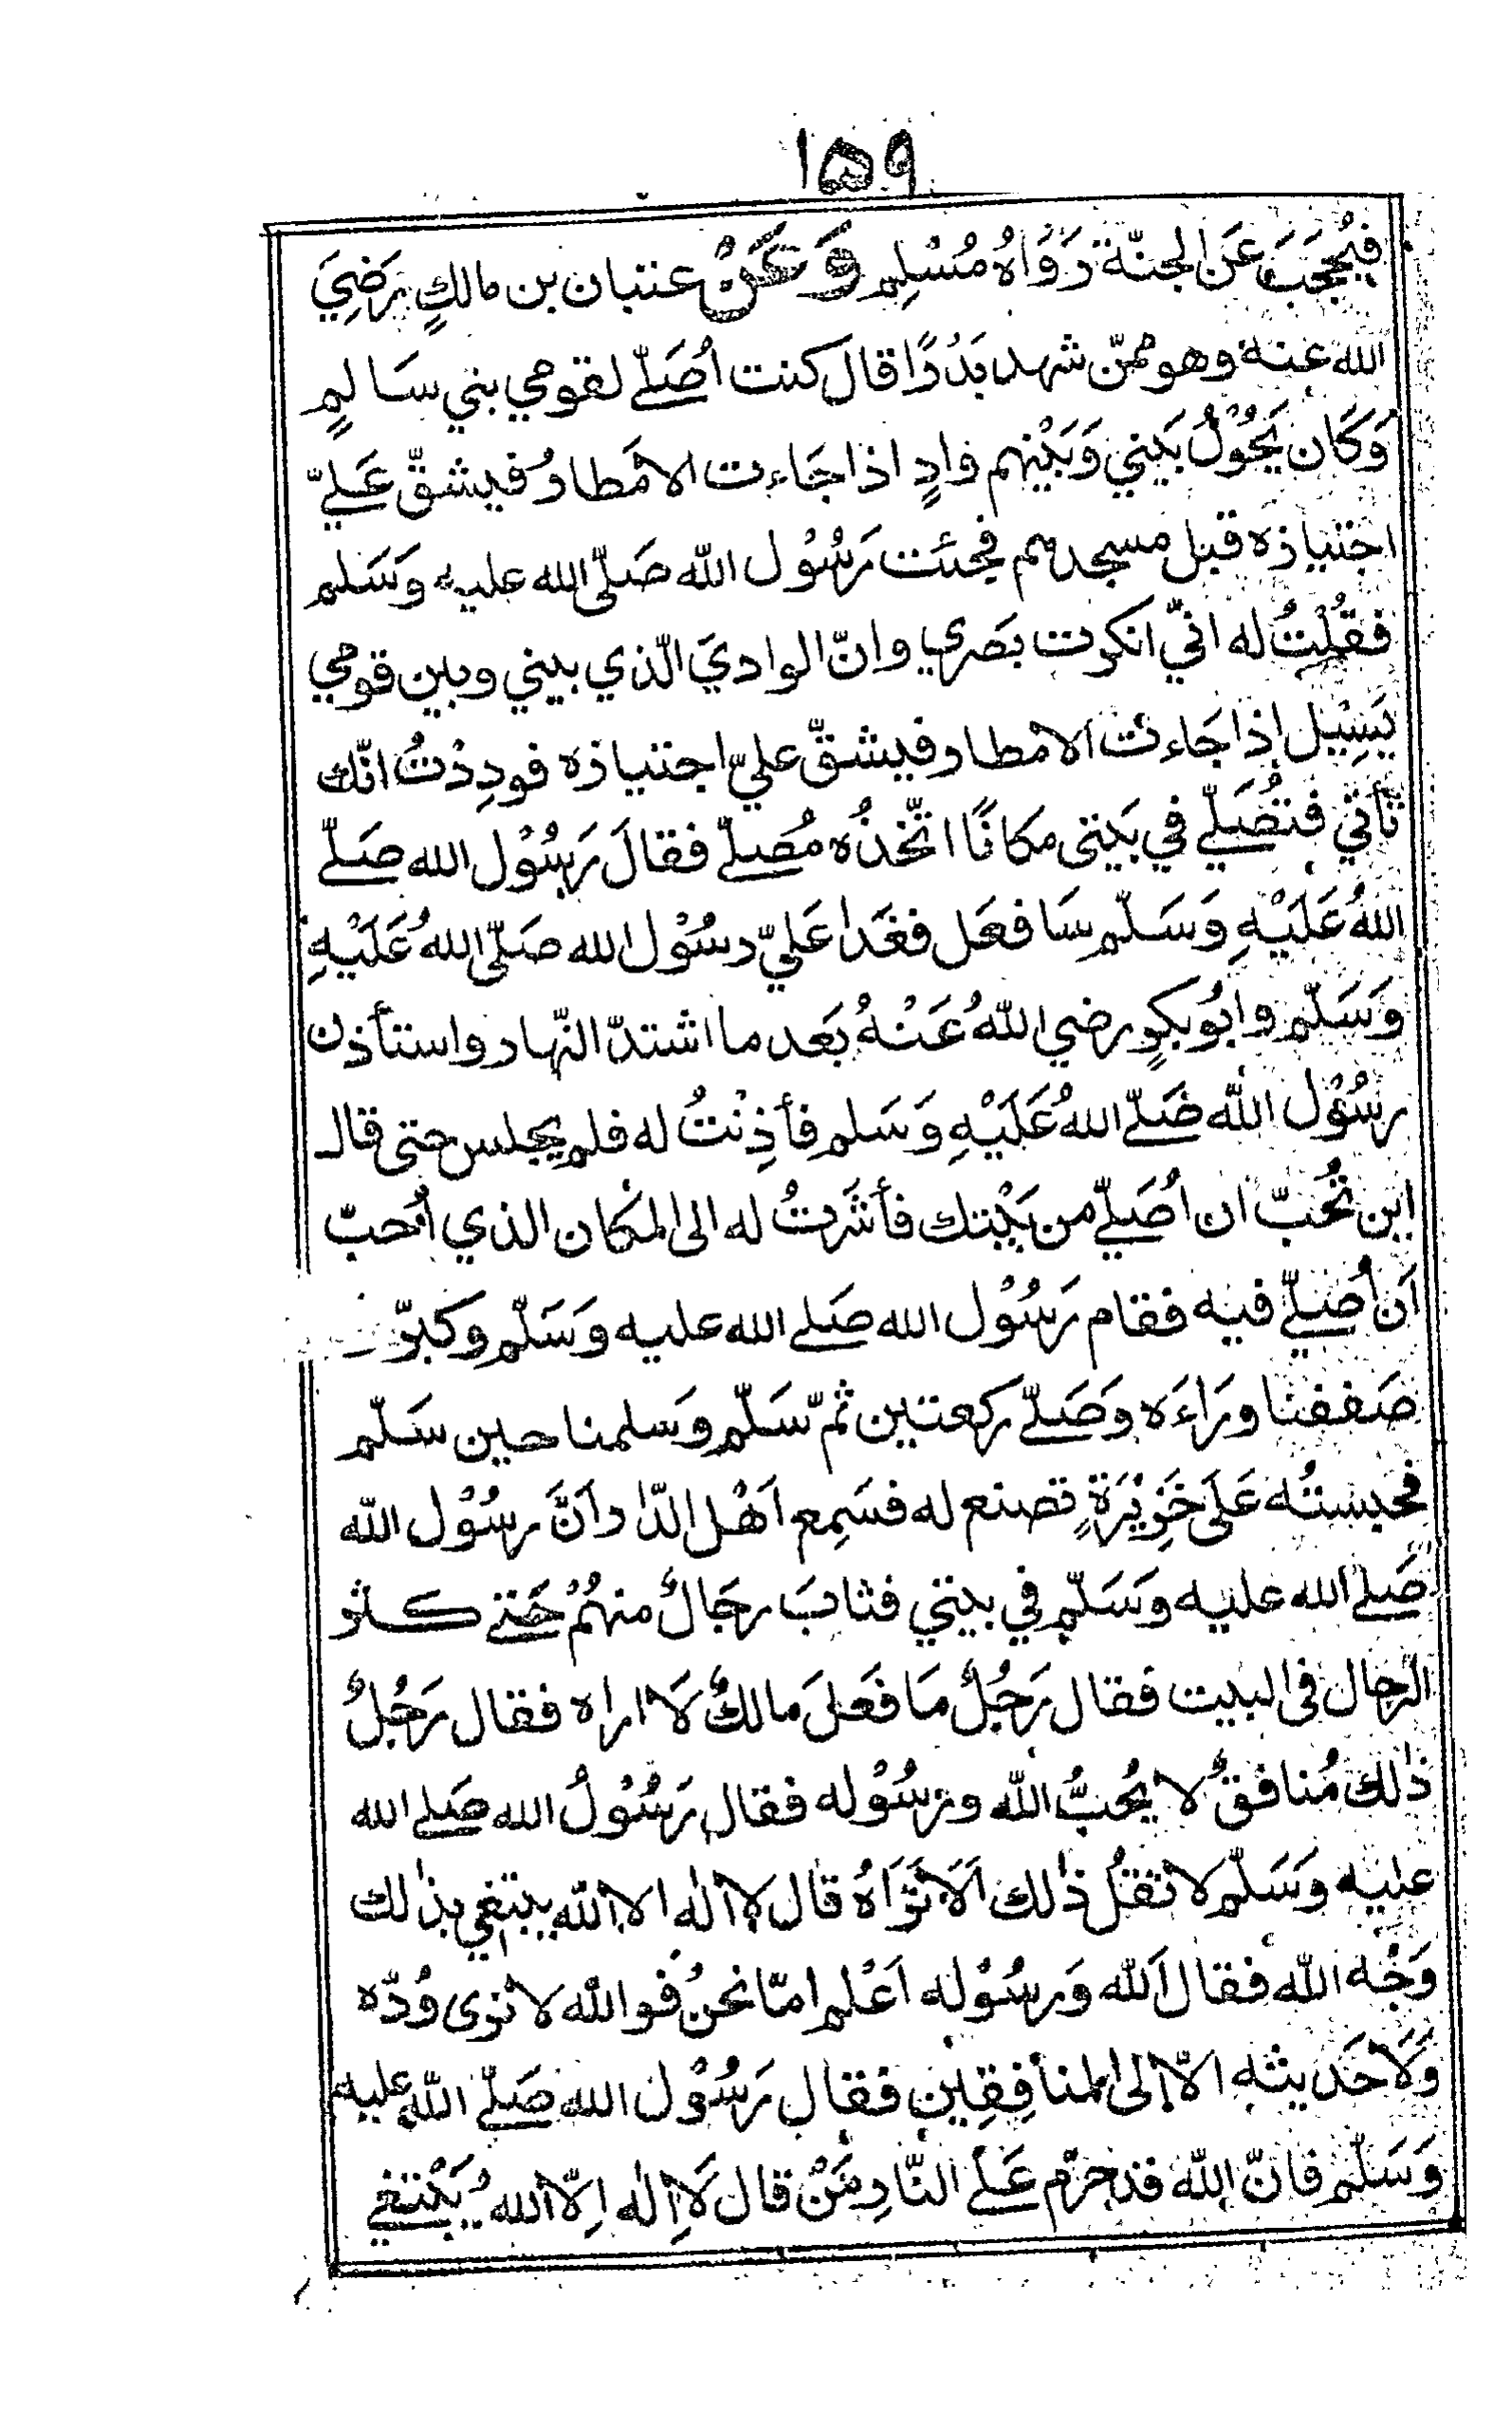 ١٥٩
فيُحجَبَ عَن الجنّة رَوَاهُ مُسْلِم وَعَنْ عتبان بن مالكٍ رَضِيَ
الله عنه وهو ممّن شهد بَدْرًا قال كنت أُصَلّي لقومي بني سَالِمٍ
وَكَان يَحُوْلُ بَيني وَبَيْنهم وادٍ اذا جَاءت الامْطارُ فيشقّ عَليّ
اجتيازه قبل مسجدهم فجئت رَسُوْل الله صَلّى الله عليه وَسَلم
فقُلْتُ له انّي انكرت بَصَري وانّ الواديَ الّذي بيني وبين قومي
يَسِيْل إذا جَاءتْ الامْطار فيشقّ عليّ اجتيازه فودِدْتُ انّك
تأتي فتُصَلّي في بَيتى مكانًا اتّخذُه مُصلّے فقالَ رَسُوْل الله صَلّے
اللهُ عَلَيْهِ وَسَلّم سَافعَل فغَدا عَليّ رسُوْل الله صَلّى اللهُ عَلَيْهِ
وَسَلّم وابُو بكرٍ رضي اللهُ عَنْهُ بَعد ما اشتدّ النّهار واستأذن
رسُوْل الله صَلّے اللهُ عَلَيْهِ وَسَلم فأذِنْتُ له فلم يجلس حتى قال
اين تُحبّ ان اُصَلّي من بَيْتك فأشَرتُ له الى المكان الذي اُحبّ
اَن اُصَلّي فيه فقام رَسُوْل الله صَلے الله عليه وَسَلّم وكبرّ
صَففنا ورَاءَه وَصَلّے ركعتين ثمّ سَلّم وَسلمنا حين سَلّم
فحبستُه عَلَى خَزِيْرَةٍ تصنع له فسَمِع اَهْل الدّار اَنَّ رسُوْل الله
صَلے الله عليه وَسَلّم في بيتي فثابَ رجَالٌ منهُمْ حَتے كثر
الرّجال فى البيت فقال رَجُلٌ مَا فَعَلَ مالكٌ لَا اراه فقال رَجُلٌ
ذٰلك مُنافقٌ لا يُحبُّ الله ورسُوْله فقال رَسُوْلُ الله صَلے الله
عليه وَسَلّم لا تقُلْ ذٰلك اَلَا تَرَاهُ قال لا اله الا الله يبتغي بذٰلك
وَجْه الله فقال اَلله وَرسُوْله اَعْلم امّا نحنُ فو الله لا نرى وُدّه
وَلَا حَديثه الّا إلى المنافِقِين فقال رَسُوْل الله صَلّے الله عليه
وَسَلّم فانّ الله قد حرّم عَلَے النّارِ مَنْ قال لَا اِلٰه اِلّا الله يَبْتغي